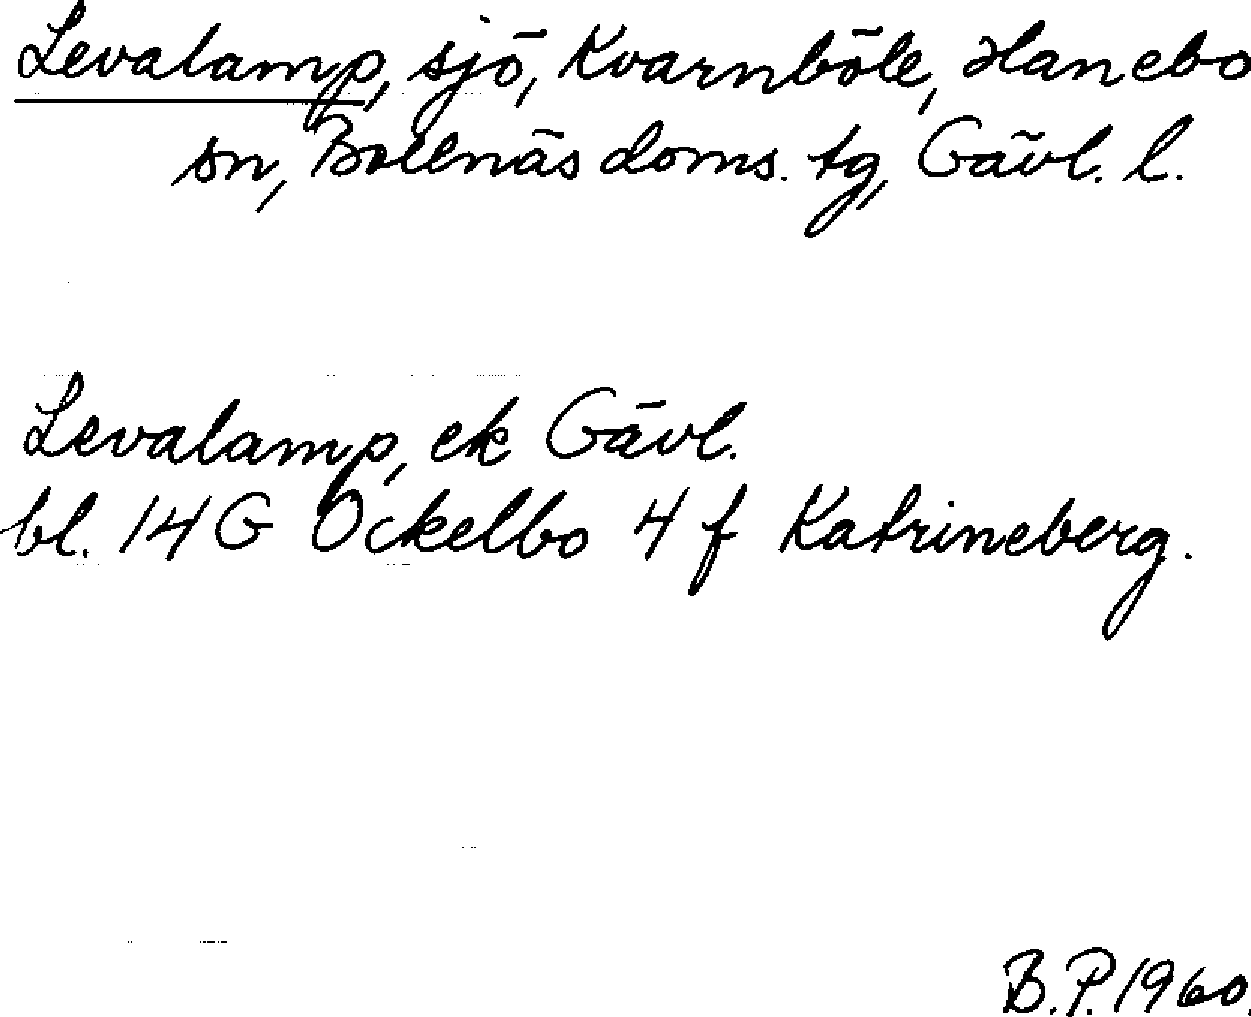 Levalamp, sjö, Kvarnböle, Hanebo
sn, Bollnäs doms. tg, Gävl. l.
Levalamp, ek Gävl.
bl. 14 G Ockelbo 4 f Katrineberg.
B.P. 1960.